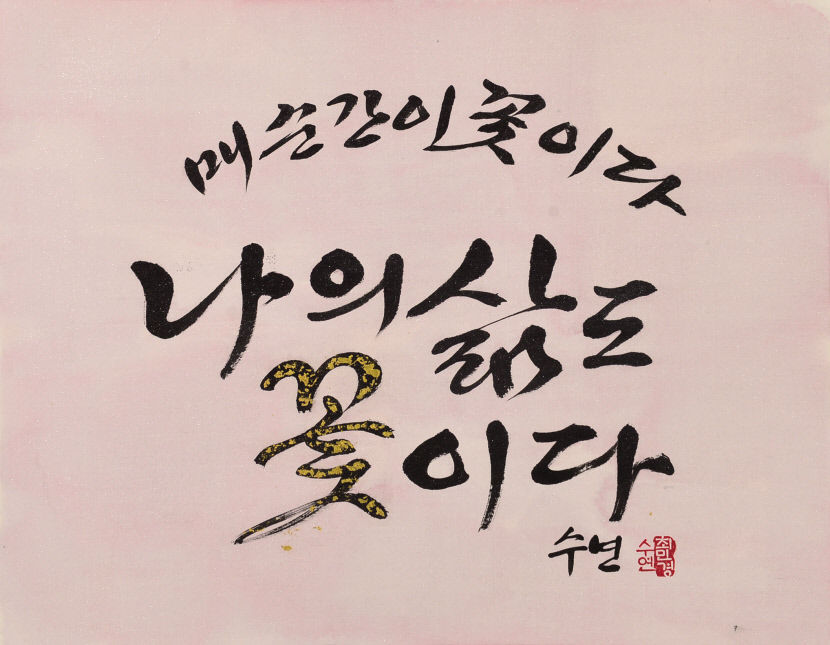 매순간이꽃이다
나의삶도
꽃이다
수연
수연